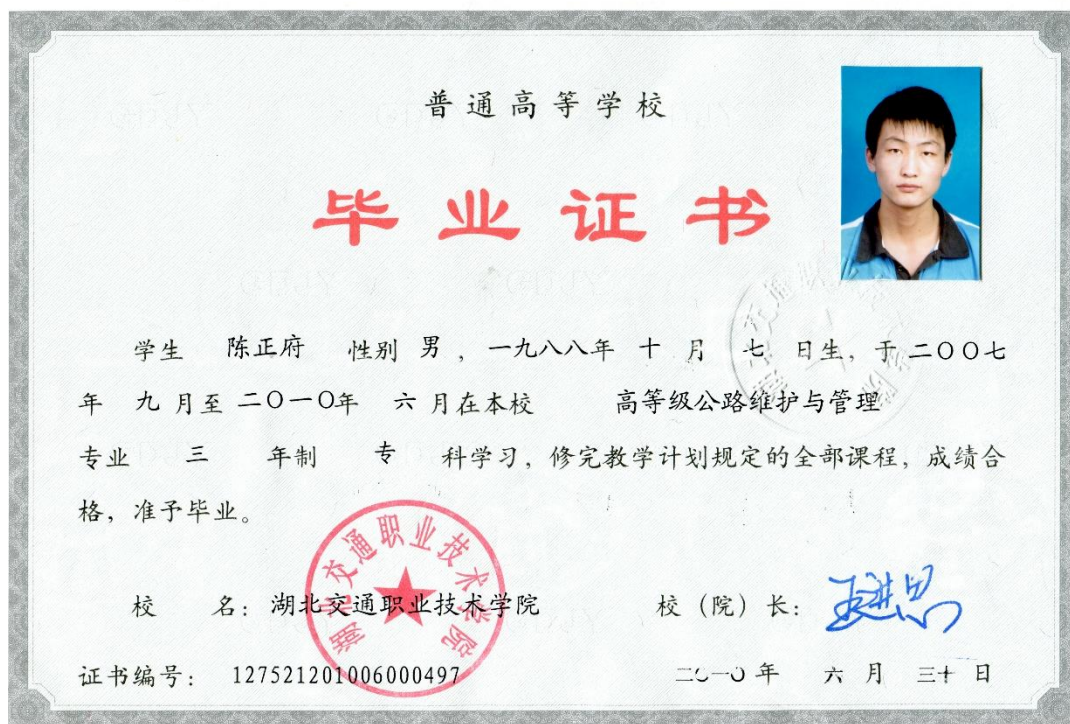 普通高等学校
毕业证书
学生 陈正府 性别 男 ，一九八八年 十 月 七 日生，于 二〇〇七
年 九 月至 二〇一〇年 六 月在本校 高等级公路维护与管理
专业 三 年制 专 科学习，修完教学计划规定的全部课程，成绩合
格，准予毕业。
湖北交通职业技术学院
校 名：湖北交通职业技术学院 校（院）长：
证书编号： 127521201006000497 二〇一〇 年 六 月 三十 日